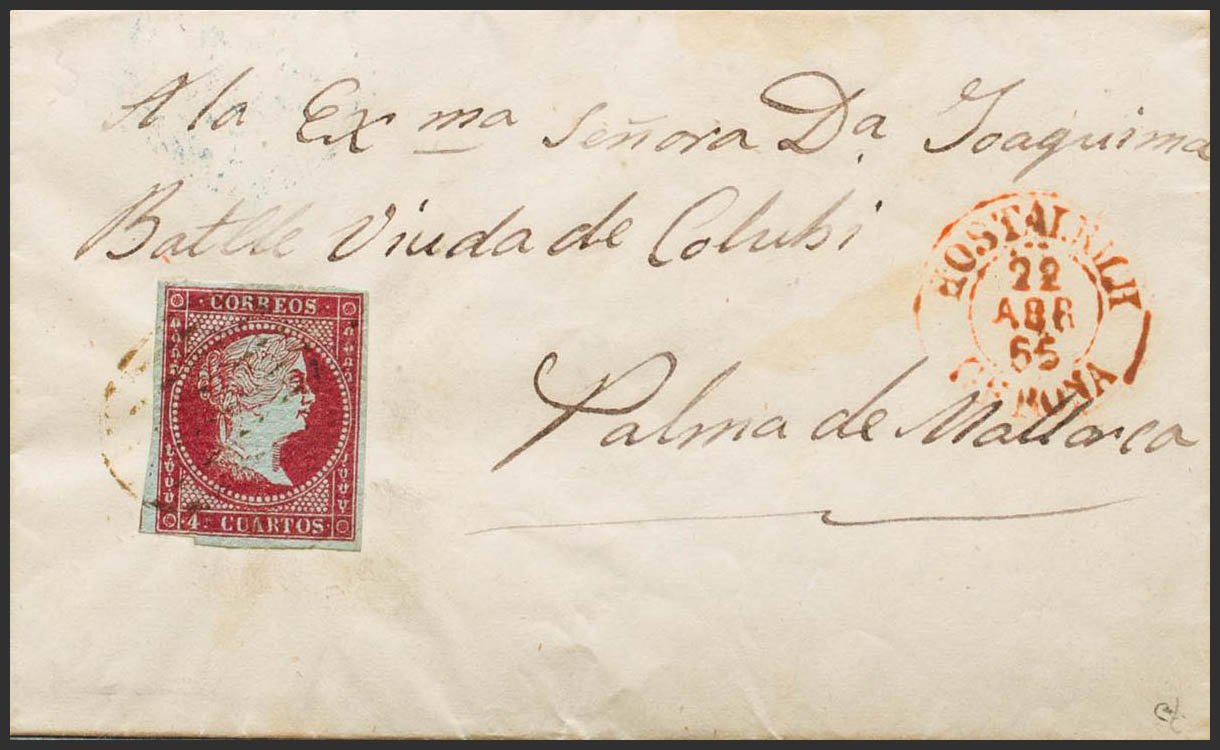 A la Exma señora Da. Joaquima
Batlle Viuda de Colubi
Palma de Mallorca
CORREOS
4 CUARTOS
HOSTALRICH
22
ABR
55
GERONA